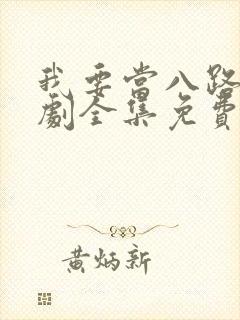 我要当八路
劇全集免費
黄炳新